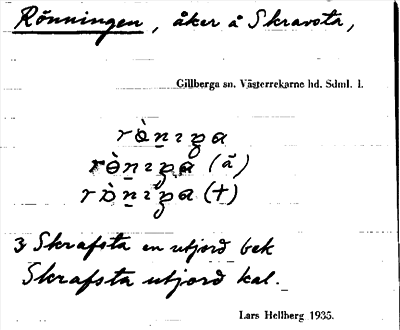 Rönningen, åker å Skravsta,
Gillberga sn. Västerrekarne hd. Sdml. l.
(å)
(†)
3 Skrafsta en utjord bek
Skrafsta utjord kal.
Lars Hellberg 1935.